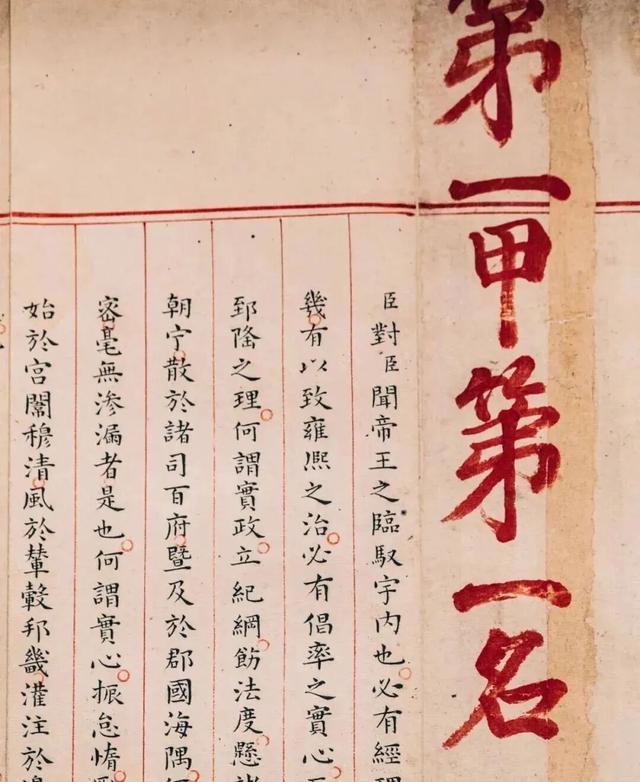 第一甲第一名
臣對臣聞帝王之臨馭宇內也必有經理
幾有以致雍熈之治必有倡率之實心
郅隆之理何謂實政立紀綱飭法度懸諸
朝宁散於諸司百府暨及於郡國海隅
宻毫無滲漏者是也何謂實心振怠惰
始於宮闈穆清風於輦轂邦畿灌注於